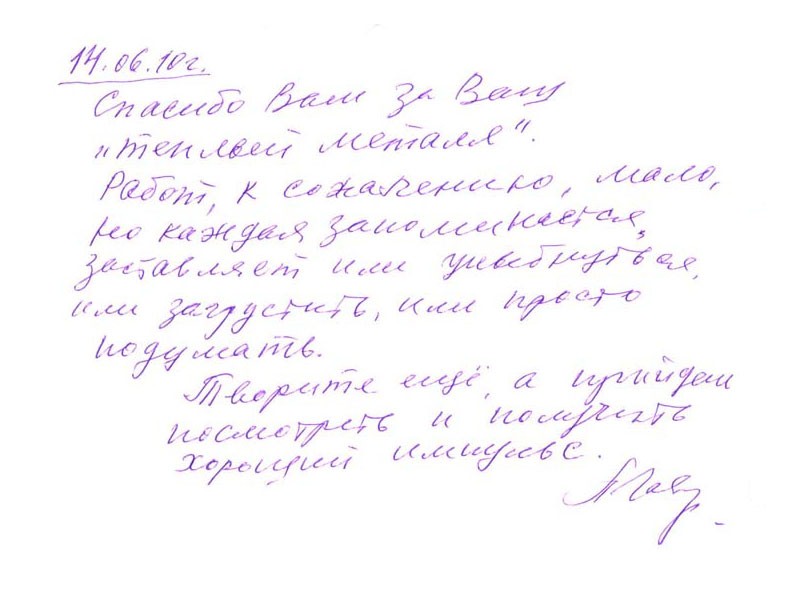 14.06.10г.
Спасибо Вам за Ваш
„теплый металл“.
Работ, к сожалению, мало,
но каждая запоминается,
заставляет или улыбнуться,
или загрустить, или просто
подумать.
Творите ещё, а придём
посмотреть и получить
хороший импульс.